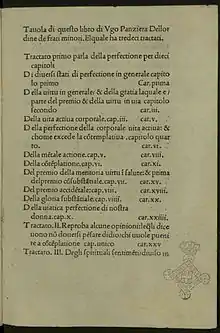 Tauola di questo libro di Vgo Panziera Dellor
dine de frati minori. Elquale ha tredeci tractati.
Tractato primo parla della perfectione per dieci
capitoli
Di diuersi stati di perfectione in generale capito
lo primo Car. prima
Della uirtu in generale & della gratia laquale e
parte del premio & della uirtu in uia capitolo
secondo car. iii.
Della uita actiua corporale. cap. iii. car. v.
Della perfectione della corporale uita actiua &
chome excede la cōtemplatiua. capitolo quar
to. car. vi.
Della mētale actione. cap. v. car. viii.
Della cōtēplatione. cap. vi. car. xi.
Del premio della memoria uirtu & salute & prima
del premio cōsubstātiale. cap. vii. car. xv.
Del premio accidētale. cap. viii. car. xviii.
Della gloria substātiale. cap. viiii. car. xx.
Della uiatica perfectione di nostra
donna. cap. x. car. xxiiii.
Tractato. II. Reproba alcune opinioni & gli di
ce uono nō douersi pēsare didio chi uuole pueni
re a cōtēplatione cap. unico car. xxv
Tractato. III. Degli spirituali sentimēti & uiso in